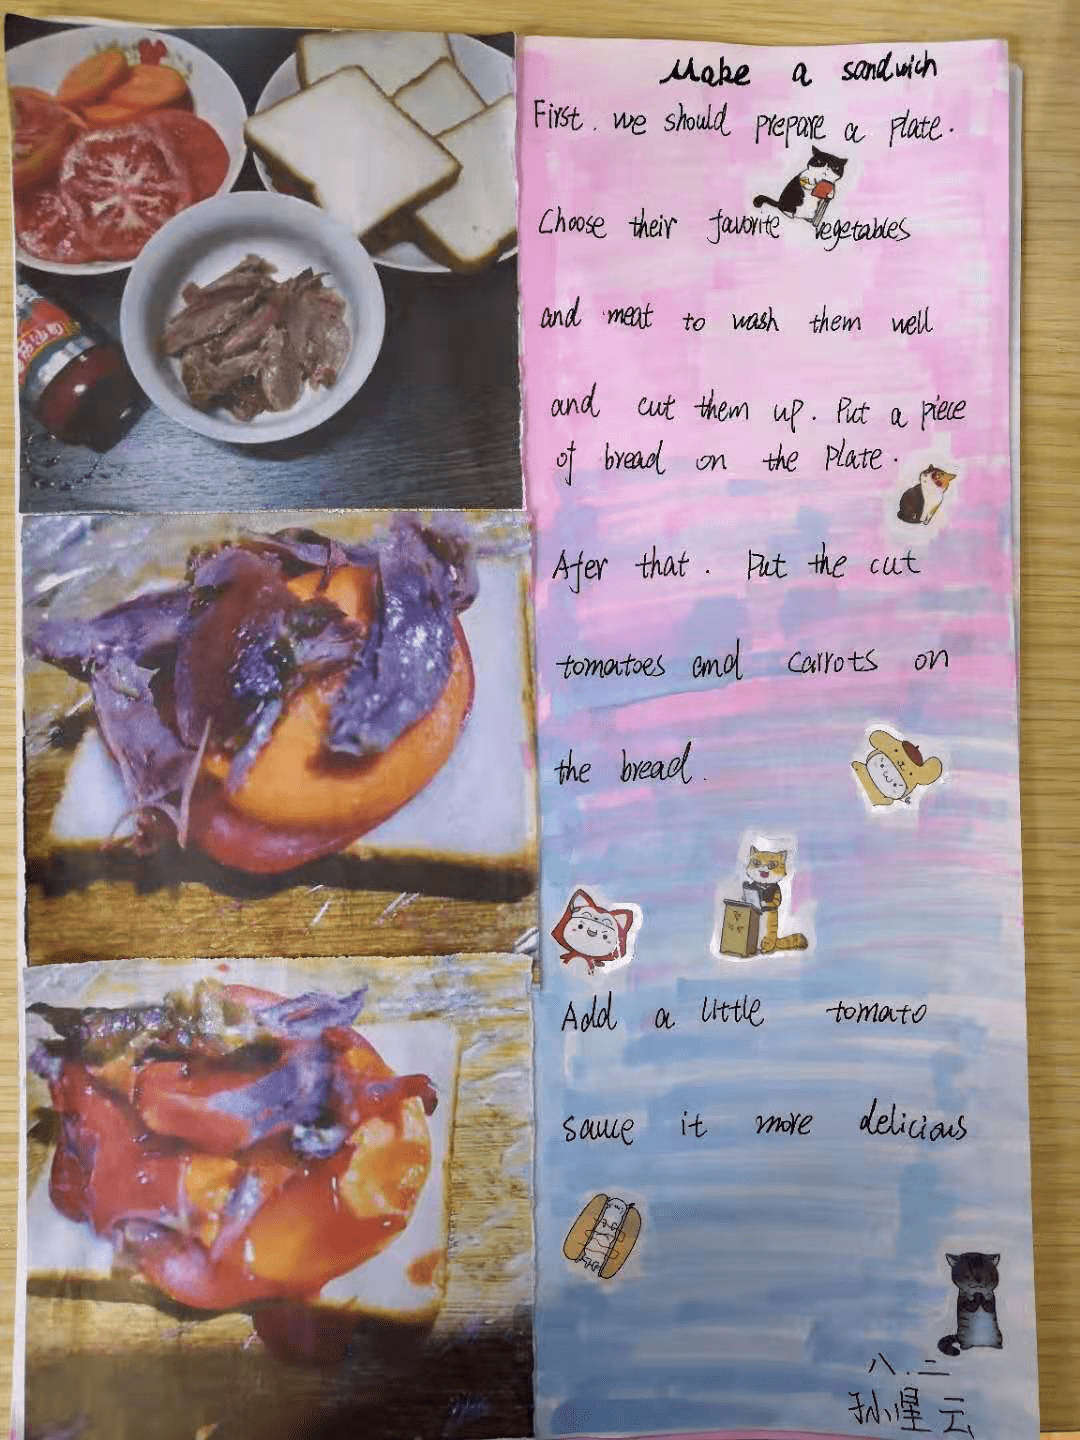 Make a sandwich
First. we should prepare a plate.
Choose their favorite vegetables
and meat to wash them well
and cut them up. Put a piece
of bread on the plate.
Afer that. Put the cut
tomatoes and carrots on
the bread.
Add a little tomato
sauce it more delicious
八.二
孙星云